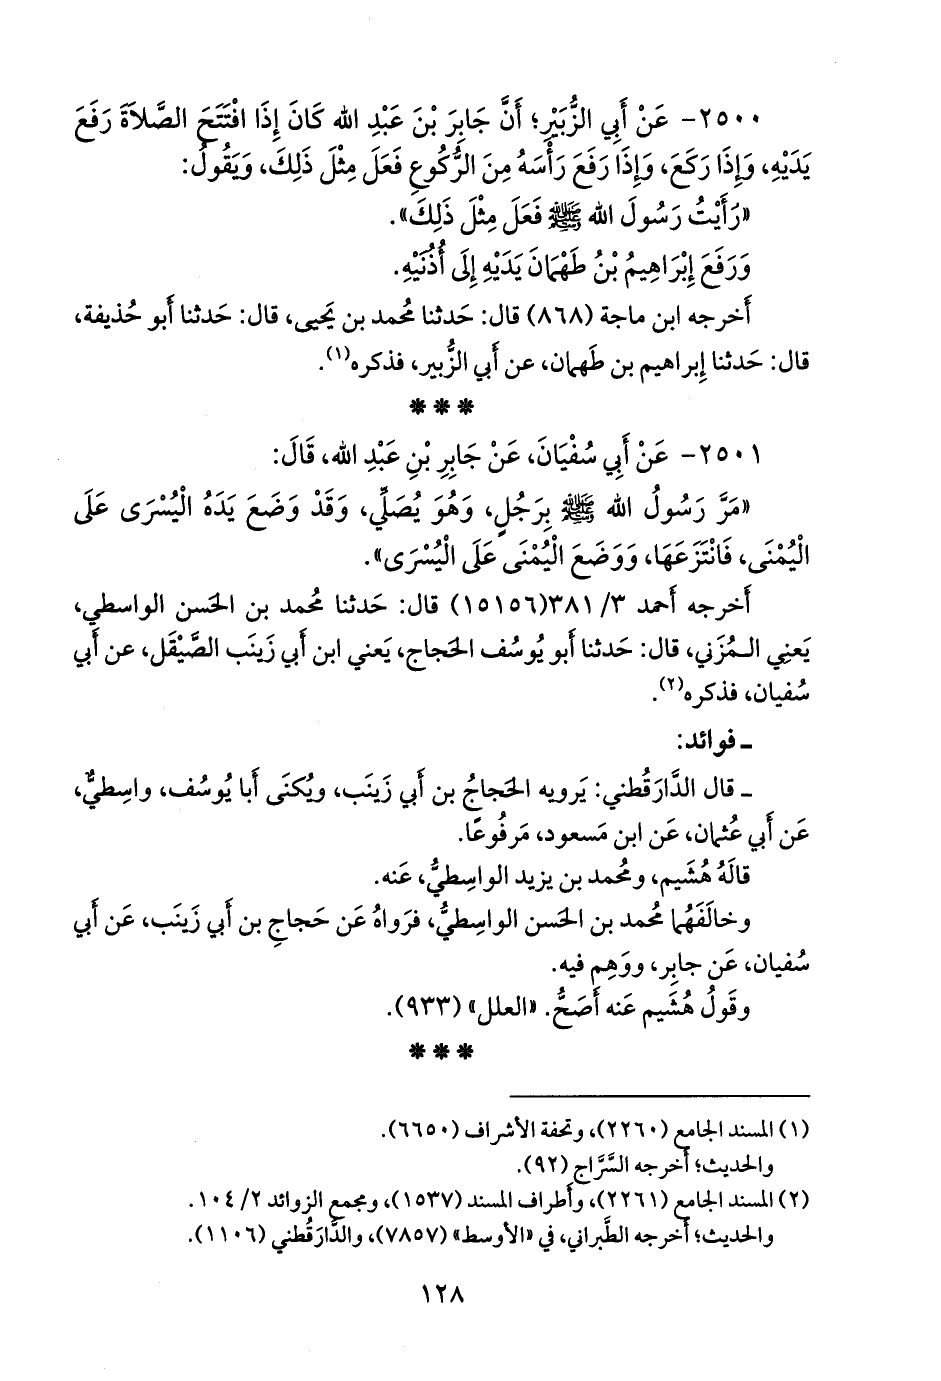 ٢٥٠٠- عَنْ أَبِي الزُّبَيْرِ؛ أَنَّ جَابِرَ بْنَ عَبْدِ الله كَانَ إِذَا افْتَتَحَ الصَّلَاةَ رَفَعَ
يَدَيْهِ، وَإِذَا رَكَعَ، وَإِذَا رَفَعَ رَأْسَهُ مِنَ الرُّكُوعِ فَعَلَ مِثْلَ ذَلِكَ، وَيَقُولُ:
«رَأَيْتُ رَسُولَ الله ﷺ فَعَلَ مِثْلَ ذَلِكَ».
وَرَفَعَ إِبْرَاهِيمُ بْنُ طَهْمَانَ يَدَيْهِ إِلَى أُذُنَيْهِ.
أَخرجه ابن ماجة (٨٦٨) قال: حَدثنا مُحمد بن يَحيى، قال: حَدثنا أَبو حُذيفة،
قال: حَدثنا إِبراهيم بن طَهمان، عن أَبي الزُّبير، فذكره(١).
* * *
٢٥٠١- عَنْ أَبِي سُفْيَانَ، عَنْ جَابِرِ بْنِ عَبْدِ الله، قَالَ:
«مَرَّ رَسُولُ الله ﷺ بِرَجُلٍ، وَهُوَ يُصَلِّي، وَقَدْ وَضَعَ يَدَهُ الْيُسْرَى عَلَى
الْيُمْنَى، فَانْتَزَعَهَا، وَوَضَعَ الْيُمْنَى عَلَى الْيُسْرَى».
أَخرجه أَحمد ٣/ ٣٨١(١٥١٥٦) قال: حَدثنا مُحمد بن الحَسن الواسطي،
يَعنِي الـمُزَني، قال: حَدثنا أَبو يُوسُف الحَجاج، يَعني ابن أَبي زَينَب الصَّيْقَل، عن أَبي
سُفيان، فذكره(٢).
ـ فوائد:
ـ قال الدَّارَقُطني: يَرويه الحَجاجُ بن أَبي زَينَب، ويُكنَى أَبا يُوسُف، واسِطيٌّ،
عَن أَبي عُثمان، عَن ابن مَسعود، مَرفُوعًا.
قالَهُ هُشَيم، ومُحمد بن يزيد الواسِطيُّ، عَنه.
وخالَفَهُما مُحمد بن الحَسن الواسِطيُّ، فرَواهُ عَن حَجاجِ بن أَبي زَينَب، عَن أَبي
سُفيان، عَن جابِر، ووَهِم فيه.
وقَولُ هُشَيم عَنه أَصَحُّ. «العلل» (٩٣٣).
* * *
(١) المسند الجامع (٢٢٦٠)، وتحفة الأشراف (٦٦٥٠).
والحديث؛ أَخرجه السَّرَّاج (٩٢).
(٢) المسند الجامع (٢٢٦١)، وأطراف المسند (١٥٣٧)، ومجمع الزوائد ٢/ ١٠٤.
والحديث؛ أَخرجه الطَّبراني، في «الأوسط» (٧٨٥٧)، والدَّارَقُطني (١١٠٦).
١٢٨